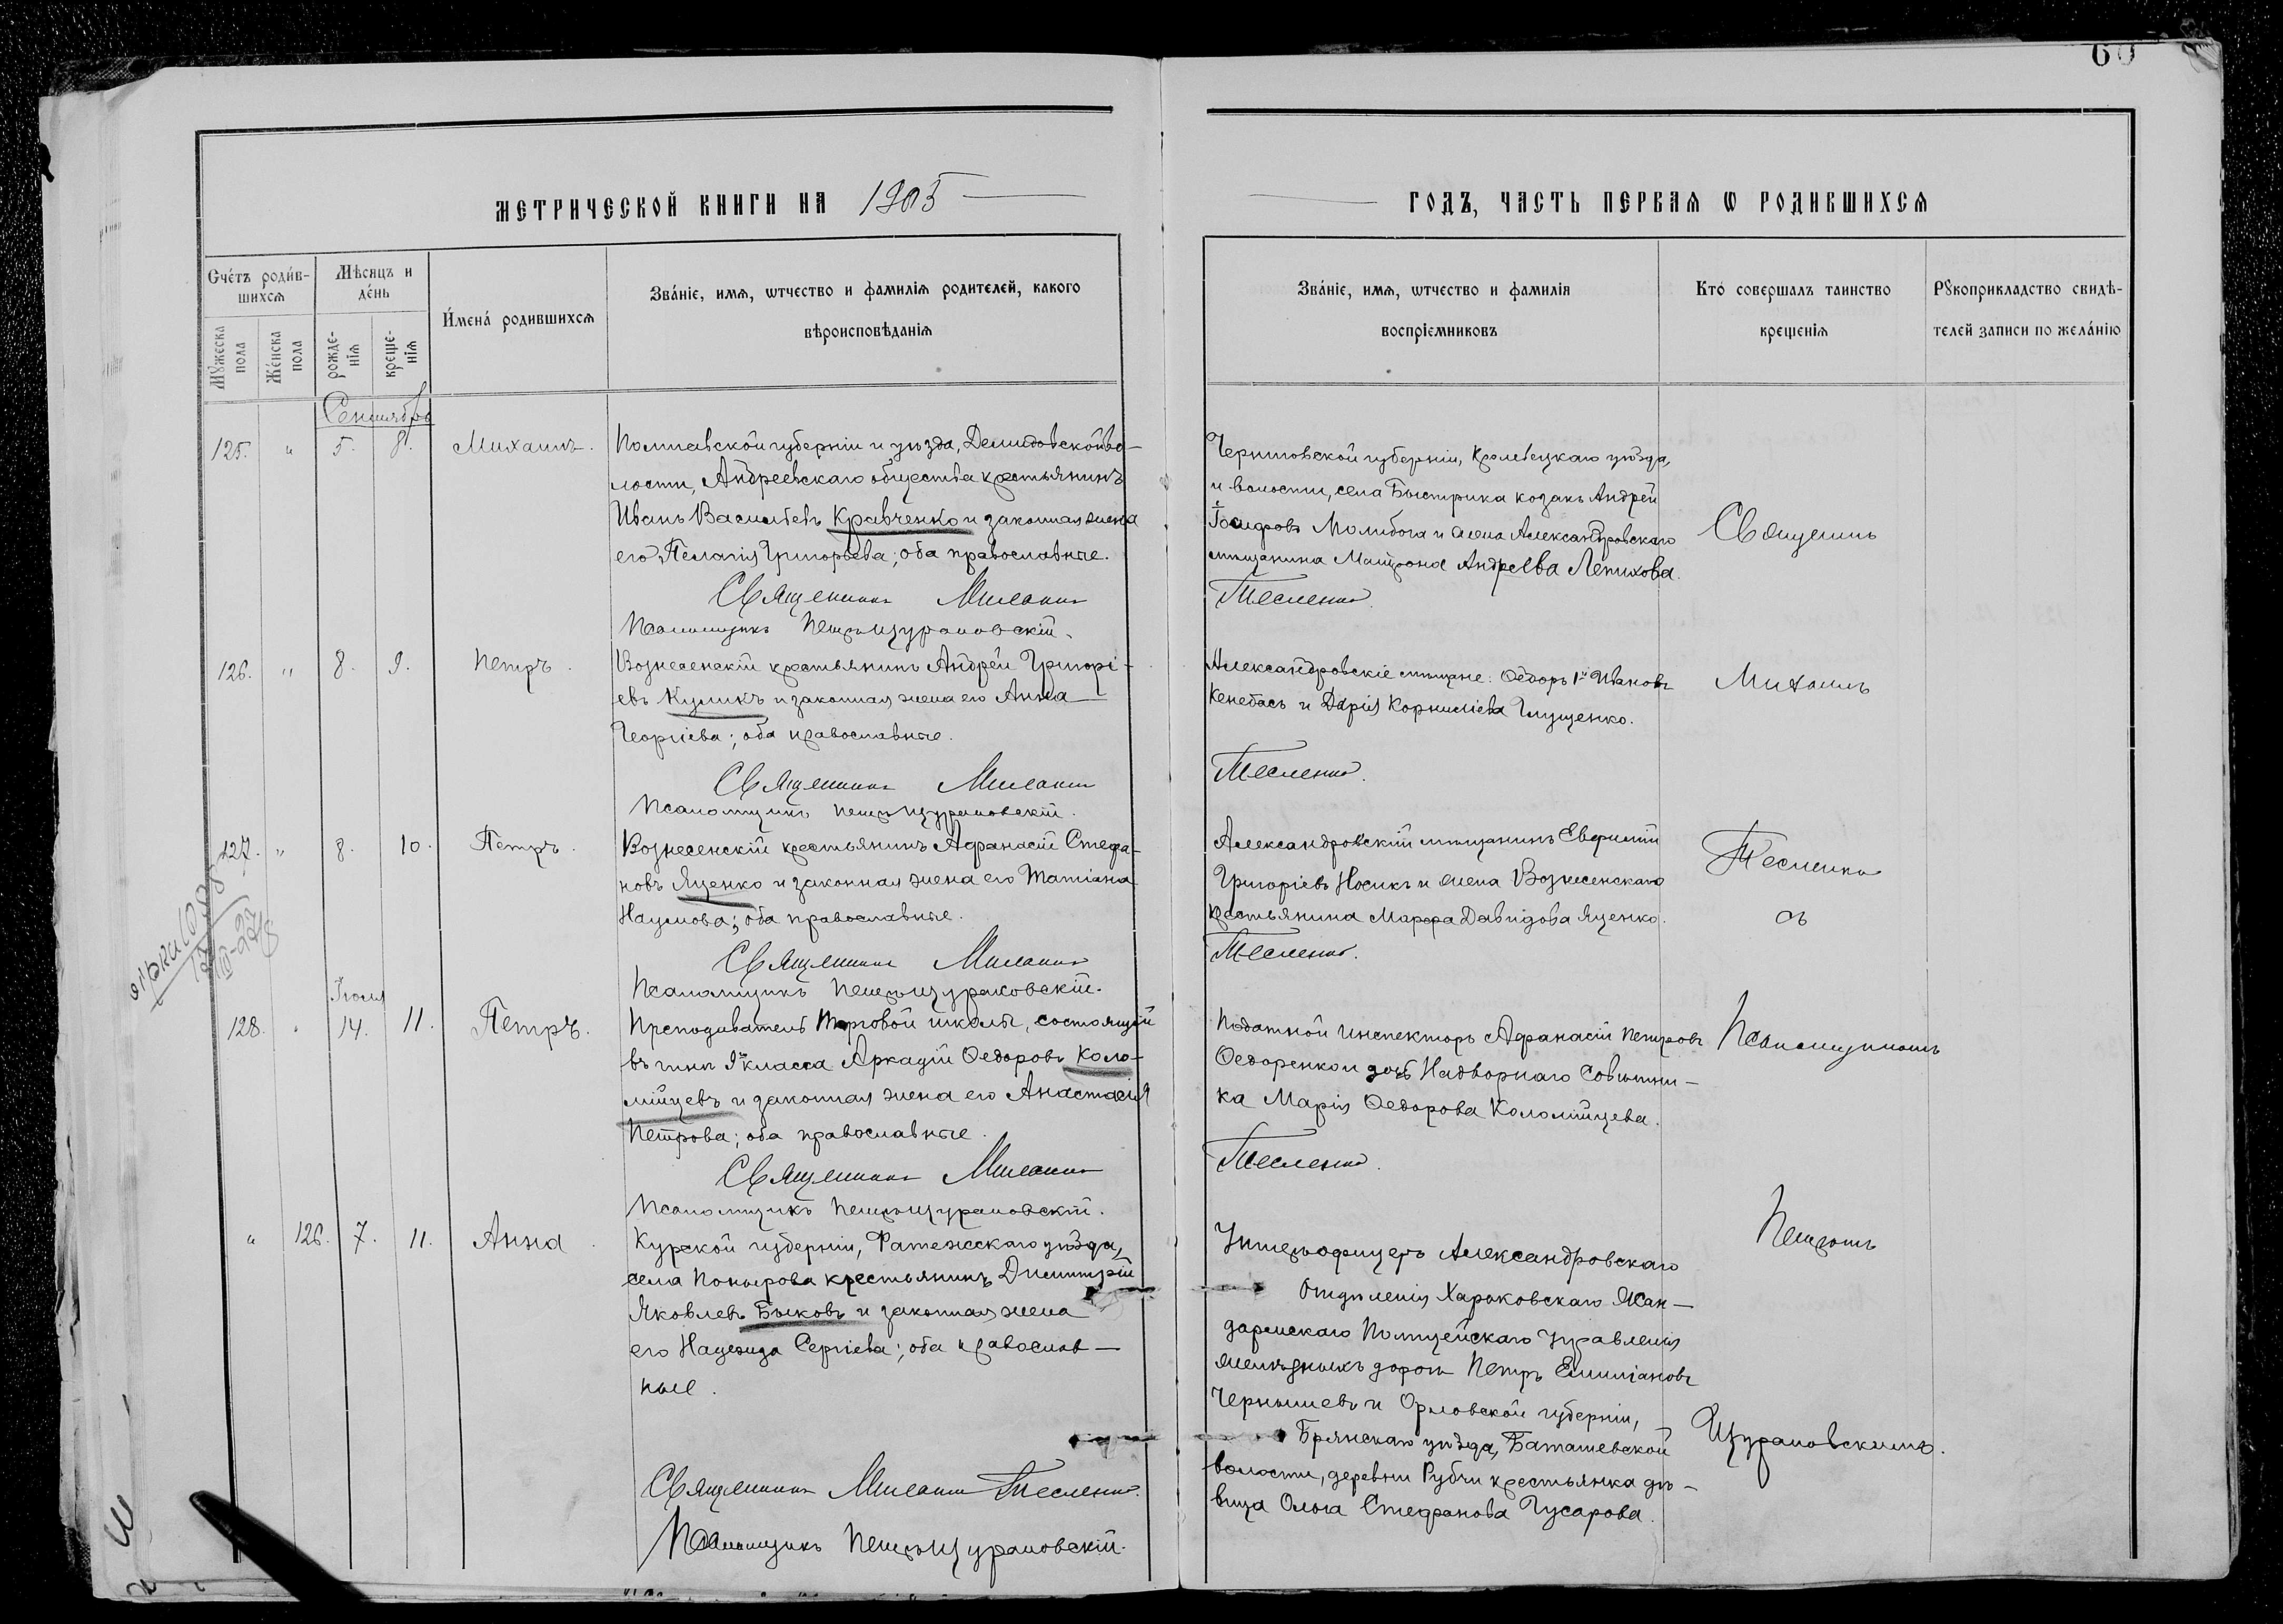 60
МЕТРИЧЕСКОЙ КНИГИ НА 1905
ГОДЪ, ЧАСТЬ ПЕРВАЯ Ѡ РОДИВШИХСЯ
Счетъ родив-
шихся
Мꙋжеска пола
Женска пола
Мѣсяцъ и
день
рожде-
нія
креще-
нія
Имена родившихся
Званіе, имя, ѡтчество и фамилія родителей, какого
вѣроисповѣданія
Званіе, имя, ѡтчество и фамилія
воспріемниковъ
Кто совершалъ таинство
крещенія
Рꙋкоприкладство свидѣ-
телей записи по желанію
Сентябрь
125. " 5. 8. Михаилъ.
Полтавской губерніи и уѣзда, Демидовской во-
лости, Андреевскаго общества крестьянинъ
Иванъ Васильевъ Кравченко и законная жена
его Пелагія Григорьева; оба православные.
Священникъ Михаилъ
Псаломщикъ Петръ Щурановскій.
Черниговской губерніи, Кролевецкаго уѣзда,
и волости, села Быстрика козакъ Андрей
Іосифовъ Молибога и жена Александровскаго
мѣщанина Матрона Андреева Лепихова.
Тесленко.
Священникъ
126. " 8. 9. Петръ.
Вознесенскій крестьянинъ Андрей Григорі-
евъ Куликъ и законная жена его Анна
Георгіева; оба православные.
Священникъ Михаилъ
Псаломщикъ Петръ Щурановскій.
Александровскіе мѣщане: Ѳедоръ 1й Ивановъ
Кенебасъ и Дарія Корниліева Глущенко.
Тесленко.
Михаилъ
127. " 8. 10. Петръ.
Вознесенскій крестьянинъ Афанасій Стефа-
новъ Яценко и законная жена его Татіана
Наумова; оба православные.
Священникъ Михаилъ
Псаломщикъ Петръ Щурановскій.
Александровскій мѣщанинъ Евфимій
Григоріевъ Носикъ и жена Вознесенскаго
крестьянина Марфа Давидова Яценко.
Тесленко.
Тесленко
съ
Іюля
128. " 14. 11. Петръ.
Преподаватель Торговой школы, состоящій
въ чинѣ 9го класса Аркадій Ѳедоровъ Коло-
мійцевъ и законная жена его Анастасія
Петрова; оба православные.
Священникъ Михаилъ
Псаломщикъ Петръ Щурановскій.
Податной инспекторъ Афанасій Петровъ
Ѳедоренко и дочь Надворнаго Совѣтни-
ка Марія Ѳедорова Коломійцева.
Тесленко.
Псаломщикомъ
" 126. 7. 11. Анна.
Курской губерніи, Фатежскаго уѣзда,
села Поныровa крестьянинъ Димитрій
Яковлевъ Быковъ и законная жена
его Надежда Сергіева; оба православ-
ные.
Священникъ Михаилъ Тесленко.
Псаломщикъ Петръ Щурановскій.
Унтеръ-офицеръ Александровскаго
Отдѣленія Харьковскаго Жан-
дармскаго Полицейскаго Управленія
желѣзныхъ дорогъ Петръ Емиліановъ
Чернышевъ и Орловской губерніи,
Брянскаго уѣзда, Баташевской
волости, деревни Рубчи крестьянка дѣ-
вица Ольга Стефанова Гусарова.
Петромъ
Щурановскимъ.